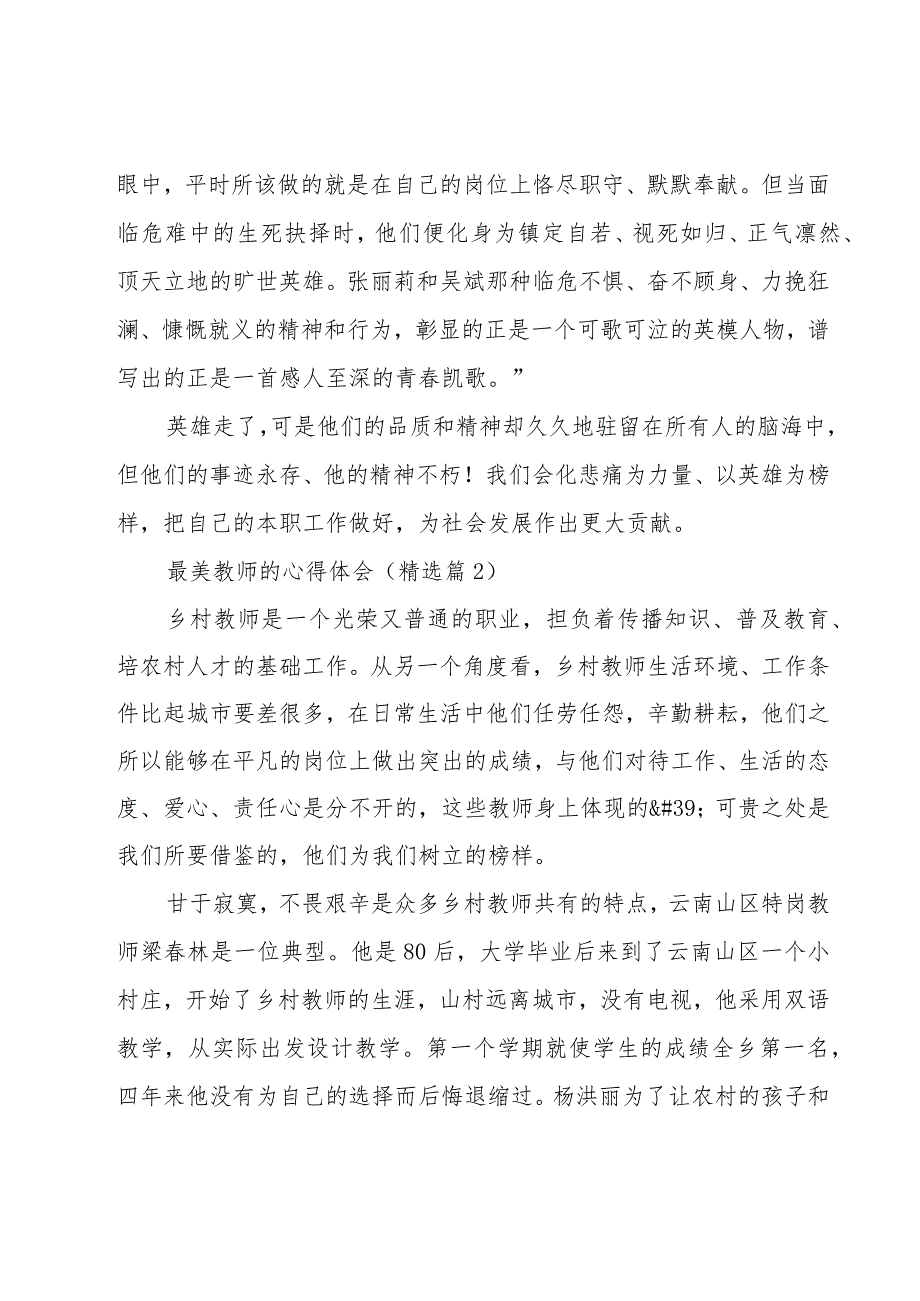 眼中，平时所该做的就是在自己的岗位上恪尽职守、默默奉献。但当面
临危难中的生死抉择时，他们便化身为镇定自若、视死如归、正气凛然、
顶天立地的旷世英雄。张丽莉和吴斌那种临危不惧、奋不顾身、力挽狂
澜、慷慨就义的精神和行为，彰显的正是一个可歌可泣的英模人物，谱
写出的正是一首感人至深的青春凯歌。”
英雄走了，可是他们的品质和精神却久久地驻留在所有人的脑海中，
但他们的事迹永存、他的精神不朽！我们会化悲痛为力量、以英雄为榜
样，把自己的本职工作做好，为社会发展作出更大贡献。
最美教师的心得体会（精选篇2）
乡村教师是一个光荣又普通的职业，担负着传播知识、普及教育、
培农村人才的基础工作。从另一个角度看，乡村教师生活环境、工作条
件比起城市要差很多，在日常生活中他们任劳任怨，辛勤耕耘，他们之
所以能够在平凡的岗位上做出突出的成绩，与他们对待工作、生活的态
度、爱心、责任心是分不开的，这些教师身上体现的&#39；可贵之处是
我们所要借鉴的，他们为我们树立的榜样。
甘于寂寞，不畏艰辛是众多乡村教师共有的特点，云南山区特岗教
师梁春林是一位典型。他是80后，大学毕业后来到了云南山区一个小
村庄，开始了乡村教师的生涯，山村远离城市，没有电视，他采用双语
教学，从实际出发设计教学。第一个学期就使学生的成绩全乡第一名，
四年来他没有为自己的选择而后悔退缩过。杨洪丽为了让农村的孩子和